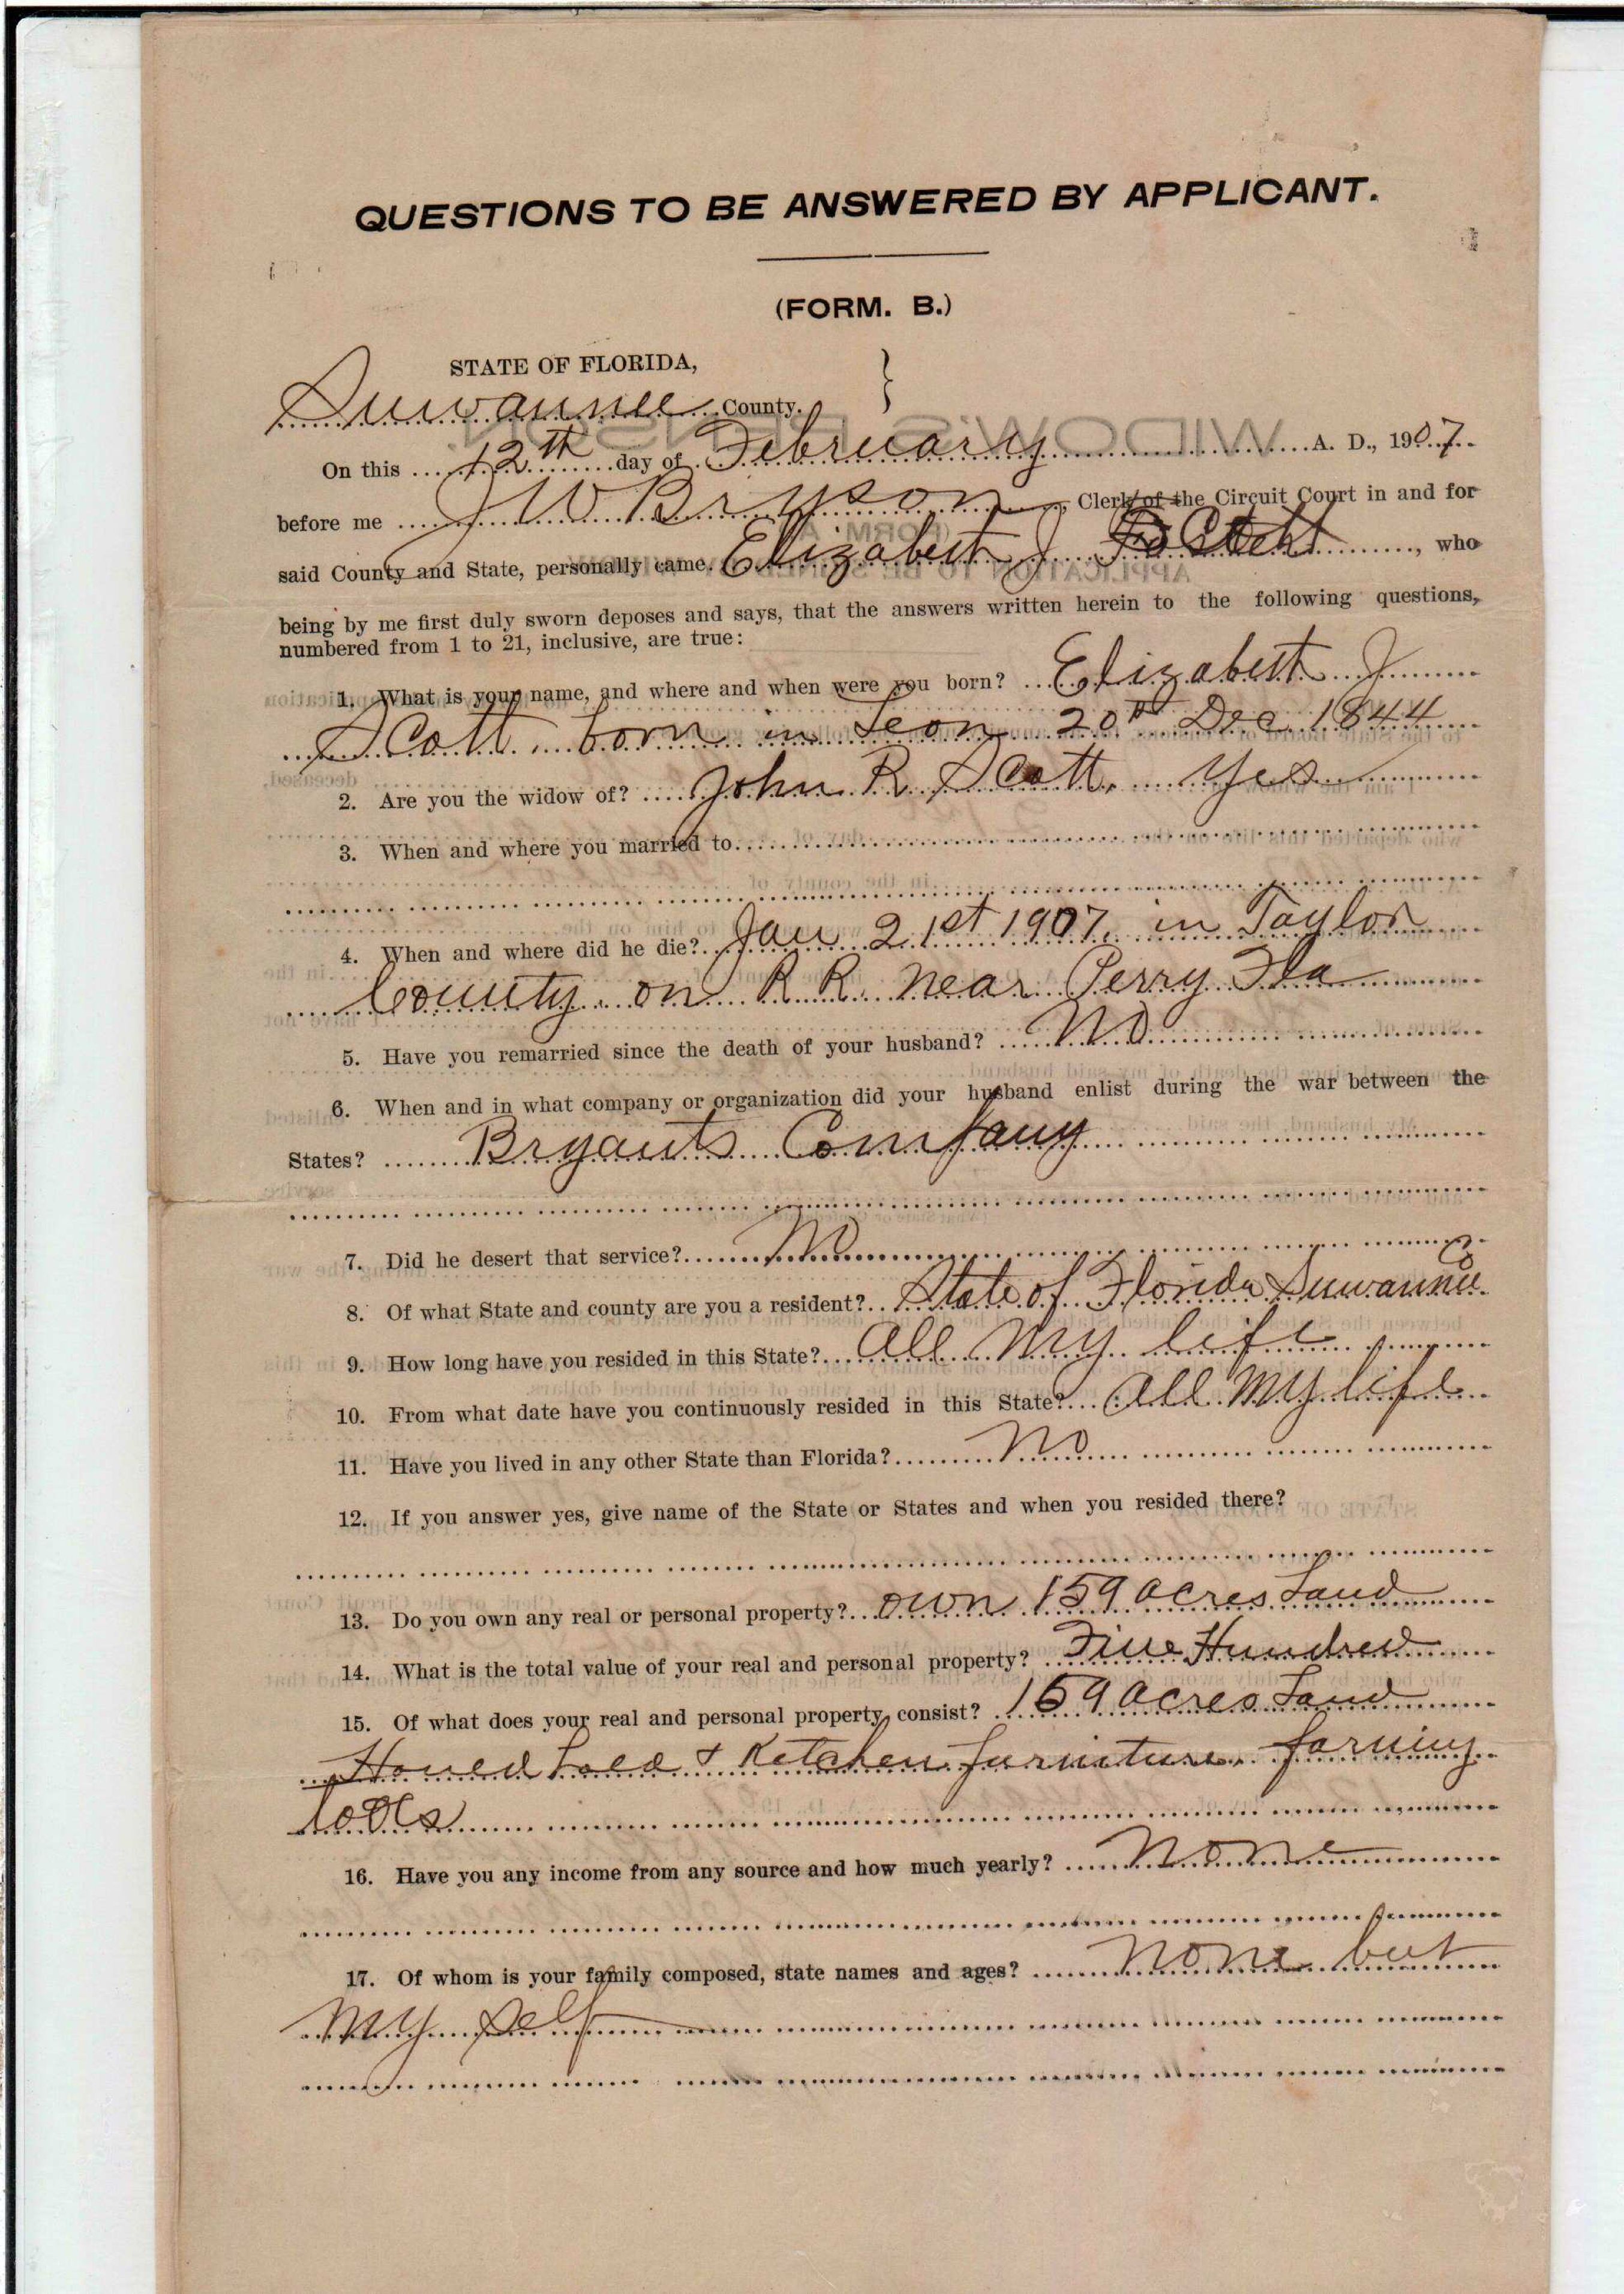 QUESTIONS TO BE ANSWERED BY APPLICANT.
(FORM. B.)
STATE OF FLORIDA,
Suwannee County.
On this 12th day of February A. D., 1907
before me J W Bryson, Clerk of the Circuit Court in and for
said County and State, personally came Elizabeth J Scott, who
being by me first duly sworn deposes and says, that the answers written herein to the following questions,
numbered from 1 to 21, inclusive, are true:
1. What is your name, and where and when were you born? Elizabeth J
Scott born in Leon 20th Dec 1844
2. Are you the widow of? John R Scott. Yes
3. When and where you married to
4. When and where did he die? Jan 21st 1907. in Taylor
County on R R near Perry Fla
5. Have you remarried since the death of your husband? No
6. When and in what company or organization did your husband enlist during the war between the
States? Bryants Company
7. Did he desert that service? No
8. Of what State and county are you a resident? State of Florida Suwannee Co
9. How long have you resided in this State? all my life
10. From what date have you continuously resided in this State? all my life
11. Have you lived in any other State than Florida? No
12. If you answer yes, give name of the State or States and when you resided there?
13. Do you own any real or personal property? own 159 acres Land
14. What is the total value of your real and personal property? Five Hundred
15. Of what does your real and personal property consist? 159 acres Land
House hold & Ketchen furniture. farming
tools
16. Have you any income from any source and how much yearly? None
17. Of whom is your family composed, state names and ages? None but
my self